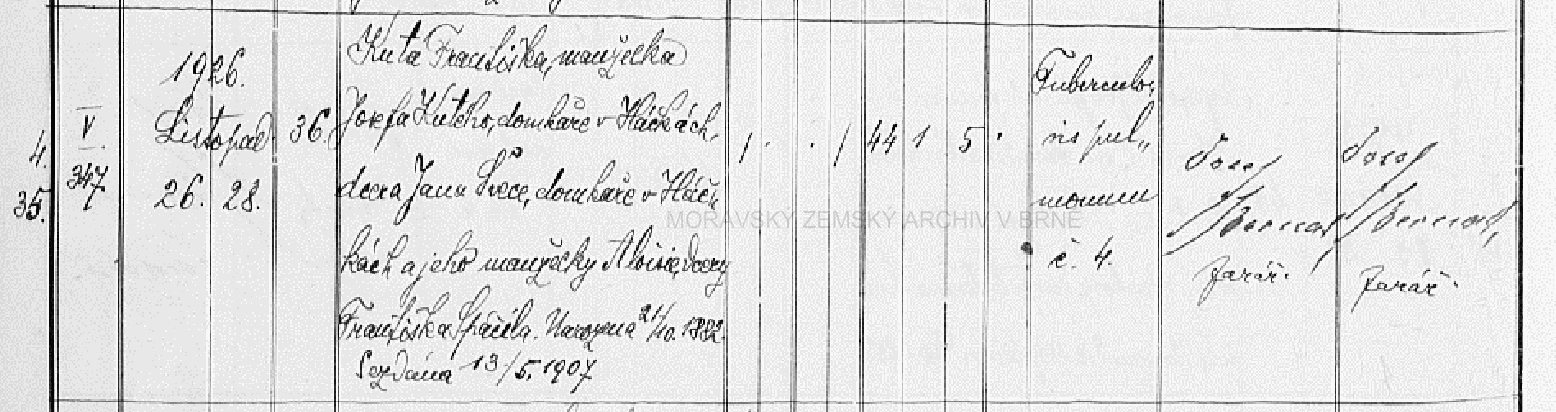 1926.
Listopad
26. 28.
4.
35.
V
347
36.
Kutá Františka, manželka
Josefa Kutého, domkaře v Háčkách,
dcera Jana Švece, domkaře v Háč-
kách a jeho manželky Aloisie, dcery
Františka Spáčila. Narozena 21/10. 1882.
Sezdána 13/5. 1907
1 . . 1 44 1 5 .
Tuberculo-
sis pul-
monum
č. 4.
Josef
farář.
Josef
farář.
MORAVSKÝ ZEMSKÝ ARCHIV V BRNĚ